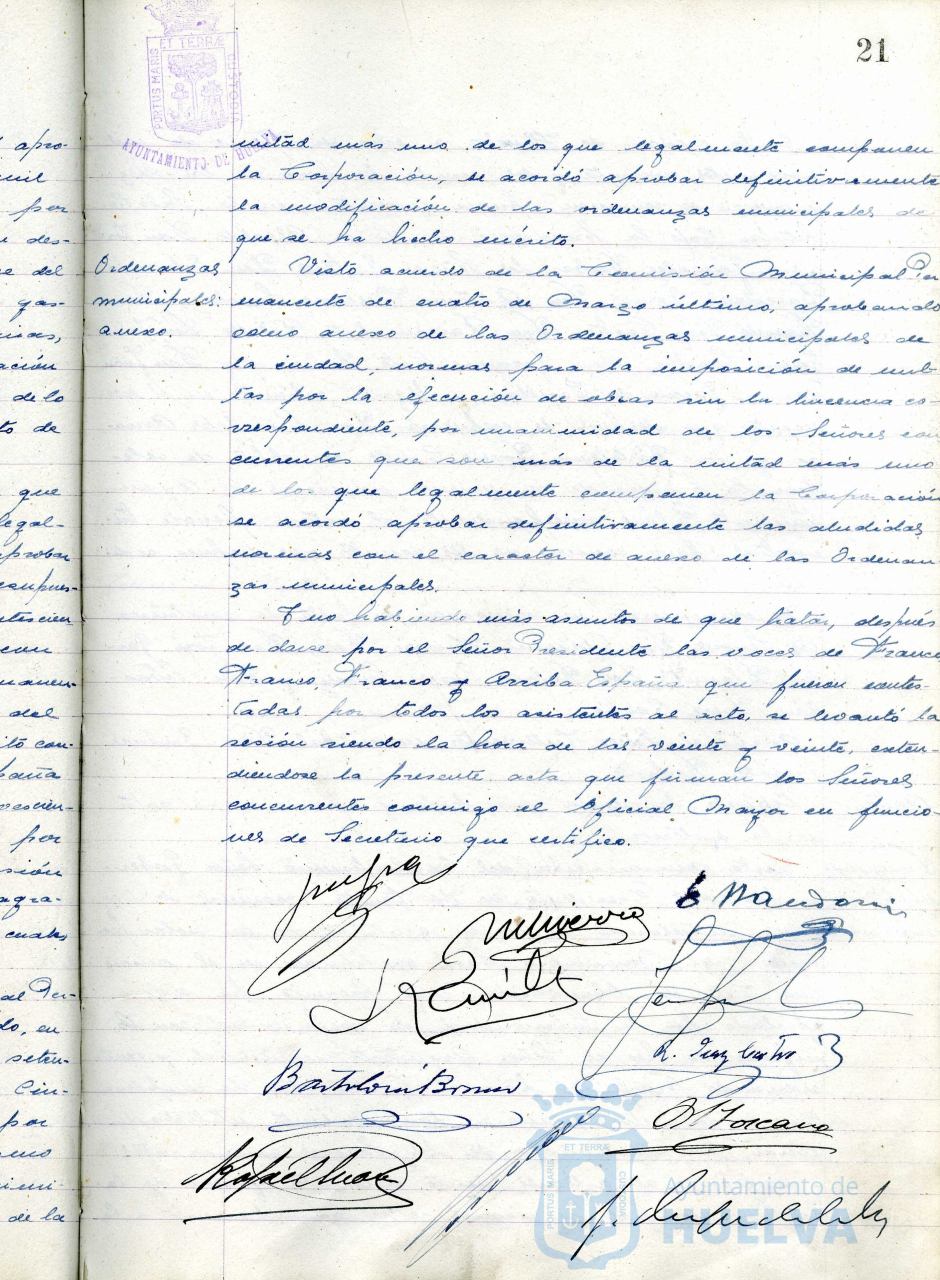 21
PORTUS MARIS ET TERRÆ CUSTODIA
AYUNTAMIENTO DE HUELVA
mitad más uno de los que legalmente componen
la Corporación, se acordó aprobar definitivamente
la modificación de las ordenanzas municipales de
que se ha hecho mérito.
Ordenanzas
municipales:
anexo.
Visto acuerdo de la Comisión Municipal Per
manente de cuatro de Marzo último, aprobando
como anexo de las Ordenanzas municipales de
la ciudad, normas para la imposición de mul-
tas por la ejecución de obras sin la licencia co-
rrespondiente, por unanimidad de los Señores con
currentes que son más de la mitad más uno
de los que legalmente componen la Corporación
se acordó aprobar definitivamente las aludidas
normas con el caracter de anexo de las Ordenan
zas municipales.
Y no habiendo más asuntos de que tratar, después
de darse por el Señor Presidente las voces de Franco
Franco, Franco y Arriba España que fueron contes-
tadas por todos los asistentes al acto, se levantó la
sesión siendo la hora de las veinte y veinte, exten-
diéndose la presente acta que firman los Señores
concurrentes conmigo el Oficial Mayor en funcio-
nes de Secretario que certifico.
apro-
mil
por
des-
del
gas-
ación
de lo
to de
que
legal-
aprobar
con
del
por
sión
agra-
cuales
al Per-
do, en
seten-
Cin-
por
de la
Toscano
Rafael
ET TERRÆ
PORTUS MARIS
Ayuntamiento de
HUELVA